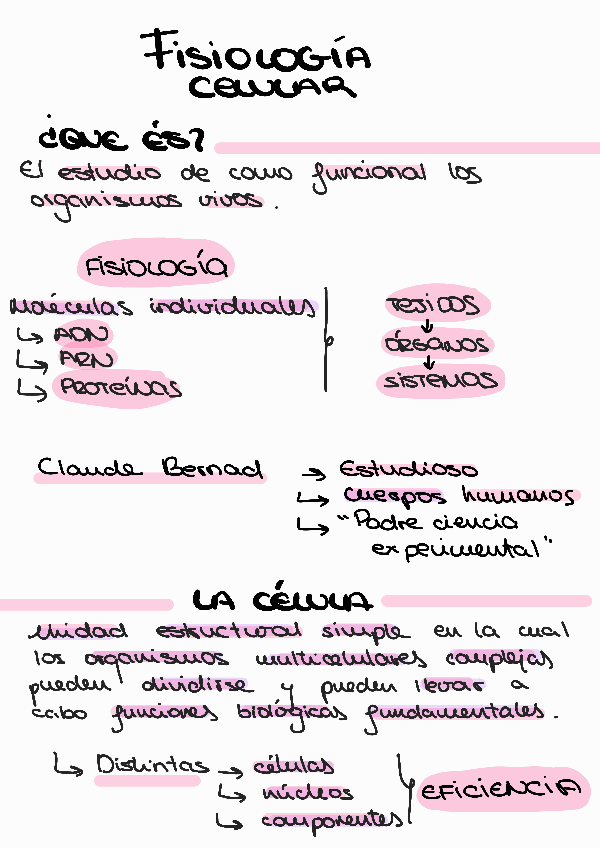 FISIOLOGÍA
CELULAR
¿QUE ÉS?
El estudio de como funcional los
organismos vivos.
FISIOLOGÍA
Moléculas individuales
↳ ADN
↳ ARN
↳ PROTEÍNAS
TEJIDOS
↓
ÓRGANOS
↓
SISTEMAS
Claude Bernad → Estudioso
↳ cuerpos humanos
↳ "Padre ciencia
experimental"
LA CÉLULA
Unidad estructural simple en la cual
los organismos multicelulares complejas
pueden dividirse y pueden llevar a
cabo funciones biológicas fundamentales.
↳ Distintas → células
↳ núcleos
↳ componentes
EFICIENCIA